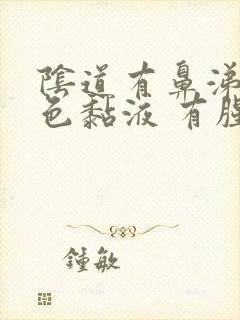 陰道有鼻涕
色黏液 有腥
鍾敏